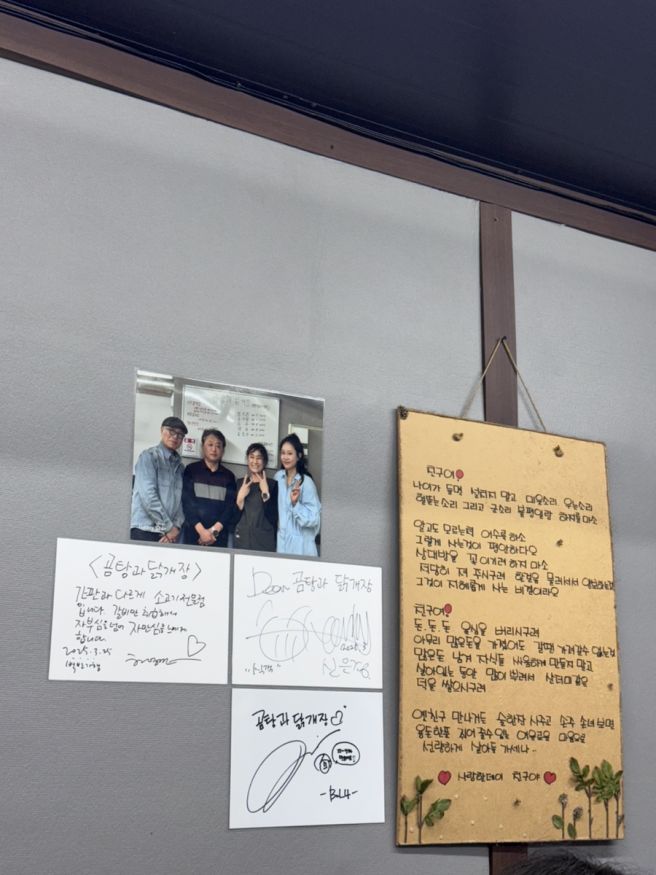 <곰탕과 닭개장>
간판과 다르게 소고기전문점
입니다. 갈비만 취급해서
자부심을넘어 자만심을
합니다.
2025.3.25
Dear 곰탕과 닭개장
2025.3
신은정
곰탕과 닭개장
-BoNA-
친구여
나이가 들면 설치지 말고 미운소리 우는소리
헐뜯는소리 그리고 군소리 불평일랑 하지를 마소
알고도 모르는척 어수룩하소
그렇게 사는것이 평안하다오
상대방을 꼭 이기려 하지 마소
적당히 져 주시구려 한걸음 물러서서 양보하는것
그것이 지혜롭게 사는 비결이라오
친구여
돈,돈,돈 욕심을 버리시구려
아무리 많은돈을 가졌어도 갈땐 가져갈수 없는것
많은돈 남겨 자식들 싸움하게 만들지 말고
살아있는 동안 많이 뿌려서 산더미같은
덕을 쌓으시구려
옛친구 만나거든 술한잔 사주고 손주 손녀 보면
용돈한푼 줄수있는 여유로운 마음으로
선량하게 살아들 가세나..
사랑한데이 친구야